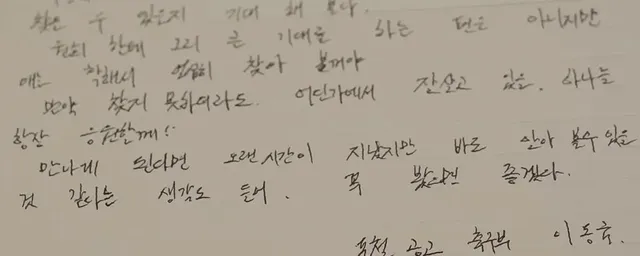 찾을 수 있을지 기대 해 본다.
원희 한테 그리 큰 기대를 하는 편은 아니지만
애쓰 학해서 열심히 찾아 볼꺼야
만약 찾지 못하더라도. 어딘가에서 잘살고 있을. 하나를
항상 응원할께!
만나게 된다면 오랜 시간이 지났지만 바로 알아 볼수 있을
것 같다는 생각도 들어. 꼭 봤으면 좋겠다.
포철 공고 축구부 이동국.